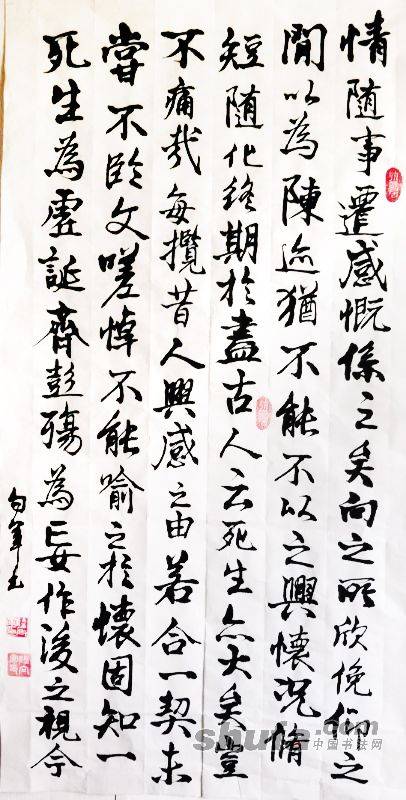 情随事遷感慨係之矣向之所欣俛仰之
閒以為陳迹猶不能不以之興懷況脩
短随化終期於盡古人云死生亦大矣豈
不痛哉每攬昔人興感之由若合一契未
甞不臨文嗟悼不能喻之於懷固知一
死生為虛誕齊彭殤為妄作後之視今
shufa.com
中国书法网